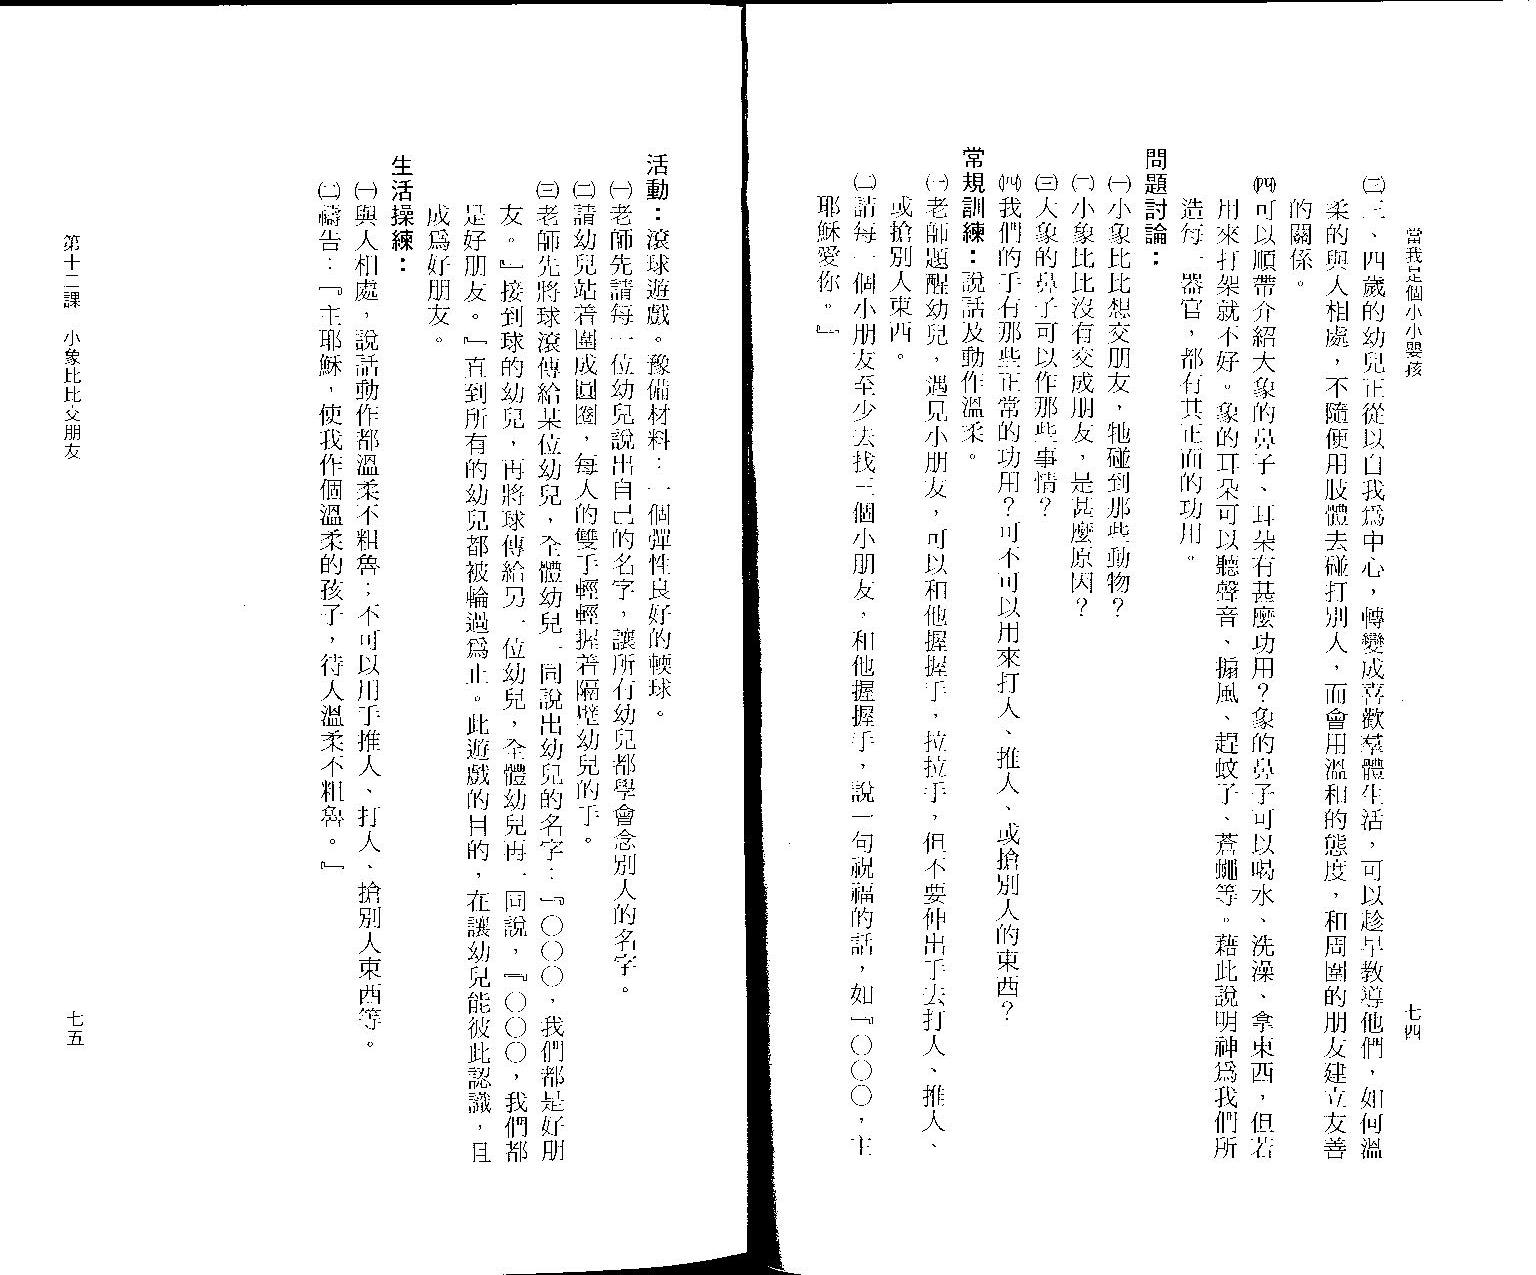 當我是個小小嬰孩
七四
㈢三、四歲的幼兒正從以自我爲中心，轉變成喜歡羣體生活，可以趁早教導他們，如何溫
柔的與人相處，不隨便用肢體去碰打別人，而會用溫和的態度，和周圍的朋友建立友善
的關係。
㈣可以順帶介紹大象的鼻子、耳朵有甚麼功用？象的鼻子可以喝水、洗澡、拿東西，但若
用來打架就不好。象的耳朵可以聽聲音、搧風、趕蚊子、蒼蠅等。藉此說明神爲我們所
造每一器官，都有其正面的功用。
問題討論：
㈠小象比比想交朋友，牠碰到那些動物？
㈡小象比比沒有交成朋友，是甚麼原因？
㈢大象的鼻子可以作那些事情？
㈣我們的手有那些正常的功用？可不可以用來打人、推人、或搶別人的東西？
常規訓練：說話及動作溫柔。
㈠老師題醒幼兒，遇見小朋友，可以和他握握手，拉拉手，但不要伸出手去打人、推人、
或搶別人東西。
㈡請每一個小朋友至少去找三個小朋友，和他握握手，說一句祝福的話，如『〇〇〇，主
耶穌愛你。』
活動：滾球遊戲。豫備材料：一個彈性良好的輭球。
㈠老師先請每一位幼兒說出自己的名字，讓所有幼兒都學會念別人的名字。
㈡請幼兒站着圍成圓圈，每人的雙手輕輕握着隔壁幼兒的手。
㈢老師先將球滾傳給某位幼兒，全體幼兒一同說出幼兒的名字：『〇〇〇，我們都是好朋
友。』接到球的幼兒，再將球傳給另一位幼兒，全體幼兒再一同說，『〇〇〇，我們都
是好朋友。』直到所有的幼兒都被輪過爲止。此遊戲的目的，在讓幼兒能彼此認識，且
成爲好朋友。
生活操練：
㈠與人相處，說話動作都溫柔不粗魯；不可以用手推人、打人、搶別人東西等。
㈡禱告：『主耶穌，使我作個溫柔的孩子，待人溫柔不粗魯。』
第十二課　小象比比交朋友
七五